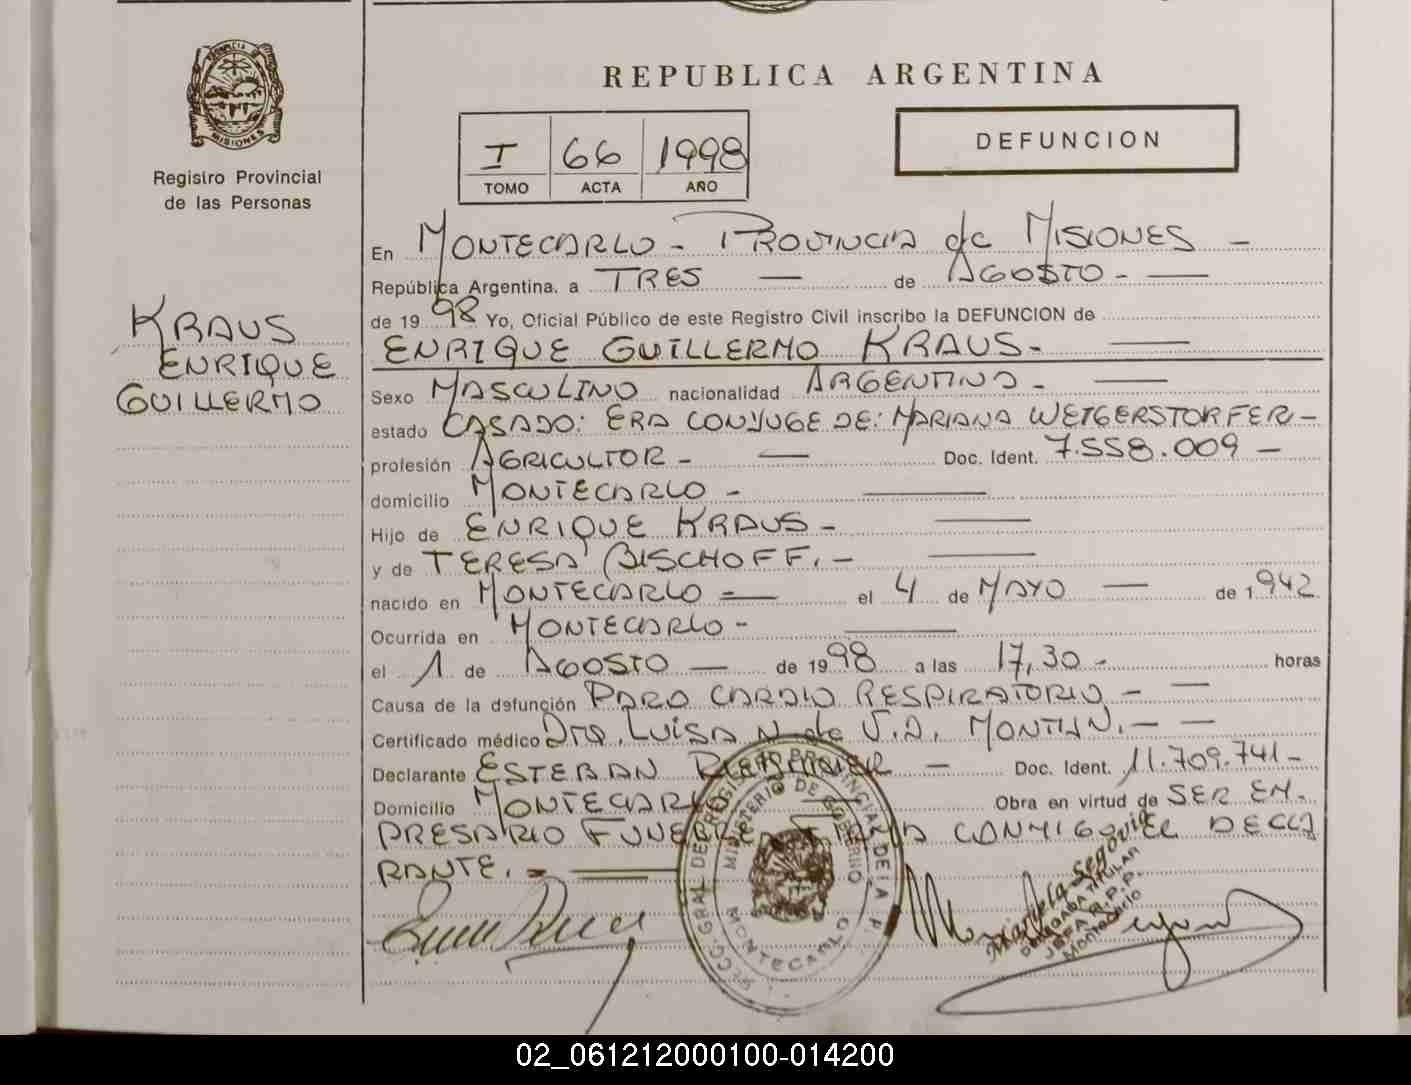 REPUBLICA ARGENTINA
PROVINCIA DE
MISIONES
Registro Provincial
de las Personas
I 66 1998
TOMO ACTA AÑO
DEFUNCION
KRAUS
ENRIQUE
GUILLERMO
En MONTECARLO - PROVINCIA de MISIONES -
República Argentina, a TRES — de AGOSTO - —
de 1998 Yo, Oficial Público de este Registro Civil inscribo la DEFUNCION de
ENRIQUE GUILLERMO KRAUS - —
Sexo MASCULINO nacionalidad ARGENTINA - —
estado CASADO: ERA CONYUGE DE: MARIANA WEIGERSTORFER -
profesión AGRICULTOR - — Doc. Ident. 7.558.009 -
domicilio MONTECARLO - —
Hijo de ENRIQUE KRAUS - —
y de TERESA BISCHOFF. - —
nacido en MONTECARLO - — el 4 de MAYO — de 1.942
Ocurrida en MONTECARLO - —
el 1 de AGOSTO — de 1998 a las 17,30 - horas
Causa de la defunción PARO CARDIO RESPIRATORIO - —
Certificado médico DRA. LUISA N de V.A. MONTIN. - —
Declarante ESTEBAN — Doc. Ident. 11.709.741 -
Domicilio MONTECARLO — Obra en virtud de SER EM-
PRESARIO FUNEBRE FIRMA CONMIGO EL DECLA
RANTE. - —
MINISTERIO DE GOBIERNO
MONTECARLO
Mariela Segovia
DELEGADA TITULAR
JEFA R.P.P.
Montecarlo
02_061212000100-014200